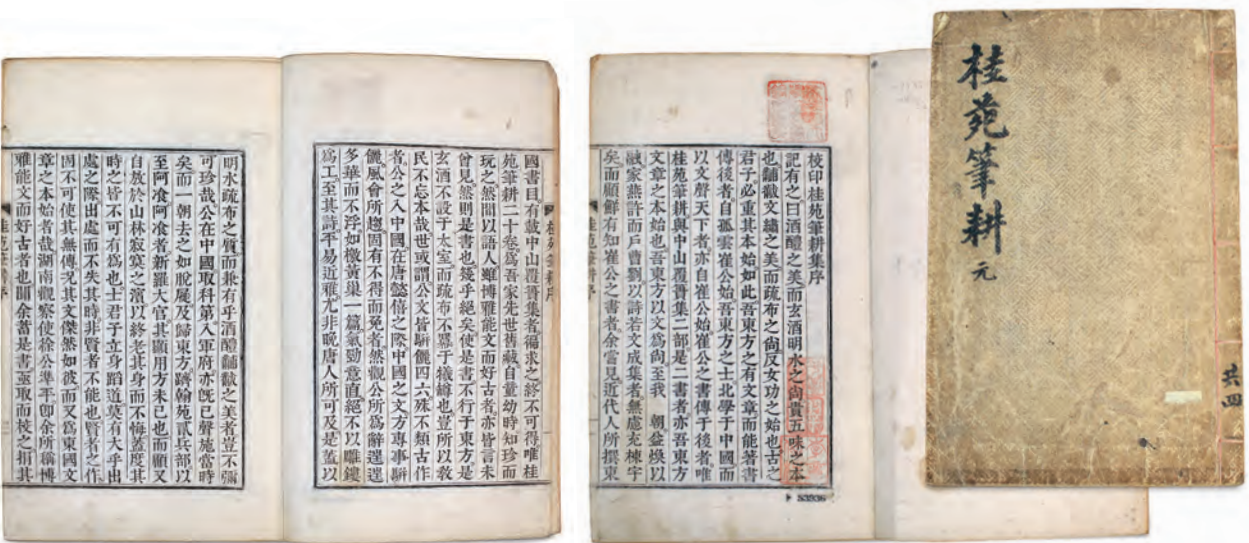 桂苑筆耕 元
共四
校印桂苑筆耕集序
記有之曰酒醴之美而玄酒明水之尙貴五味之本
也黼黻文繡之美而疏布之尙反女功之始也古之
君子必重其本始如此吾東方之有文章而能著書
傳後者自孤雲崔公始吾東方之士北學于中國而
以文聲天下者亦自崔公始崔公之書傳于後者唯
桂苑筆耕與中山覆簣集二部是二書者亦吾東方
文章之本始也吾東方以文爲尙至我 朝益煥以
融家燕許而戶曹劉以詩若文成集者無慮充棟宇
矣而顧鮮有知崔公之書者余嘗見近代人所撰東
53936
桂苑筆耕序
國書目有載中山覆簣集者徧求之終不可得唯桂
苑筆耕二十卷爲吾家先世舊藏自童幼時知珍而
玩之然間以語人雖博雅能文而好古者亦皆言未
曾見然則是書也幾乎絕矣使是書不行于東方是
玄酒不設于太室而疏布不羃于犧罇也豈所以敎
民不忘本哉世或謂公文皆騈儷四六殊不類古作
者公之入中國在唐懿僖之際中國之文方專事騈
儷風會所趨固有不得而免者然觀公所爲辭往往
多華而不浮如檄黃巢一篇氣勁意直絕不以雕鏤
爲工至其詩平易近雅尤非晩唐人所可及是蓋以
明水疏布之質而兼有乎酒醴黼黻之美者豈不彌
可珍哉公在中國取科第入軍府亦旣已聲施當時
矣而一朝去之如脫屣及歸東方躋翰苑貳兵部以
至阿飡阿飡者新羅大官其顯用方未已也而顧又
自放於山林寂寞之濱以終老其身而不悔蓋度其
時之皆不可有爲也士君子立身蹈道莫有大乎出
處之際出處而不失其時非賢者不能也賢者之作
固不可使其無傳況其文傑然如彼而又爲東國文
章之本始者哉湖南觀察使徐公準平卽余所稱博
雅能文而好古者也聞余蓄是書亟取而校之捐其